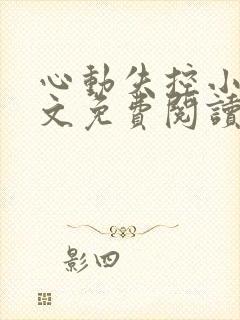 心動失控小
文免費閱讀
影四